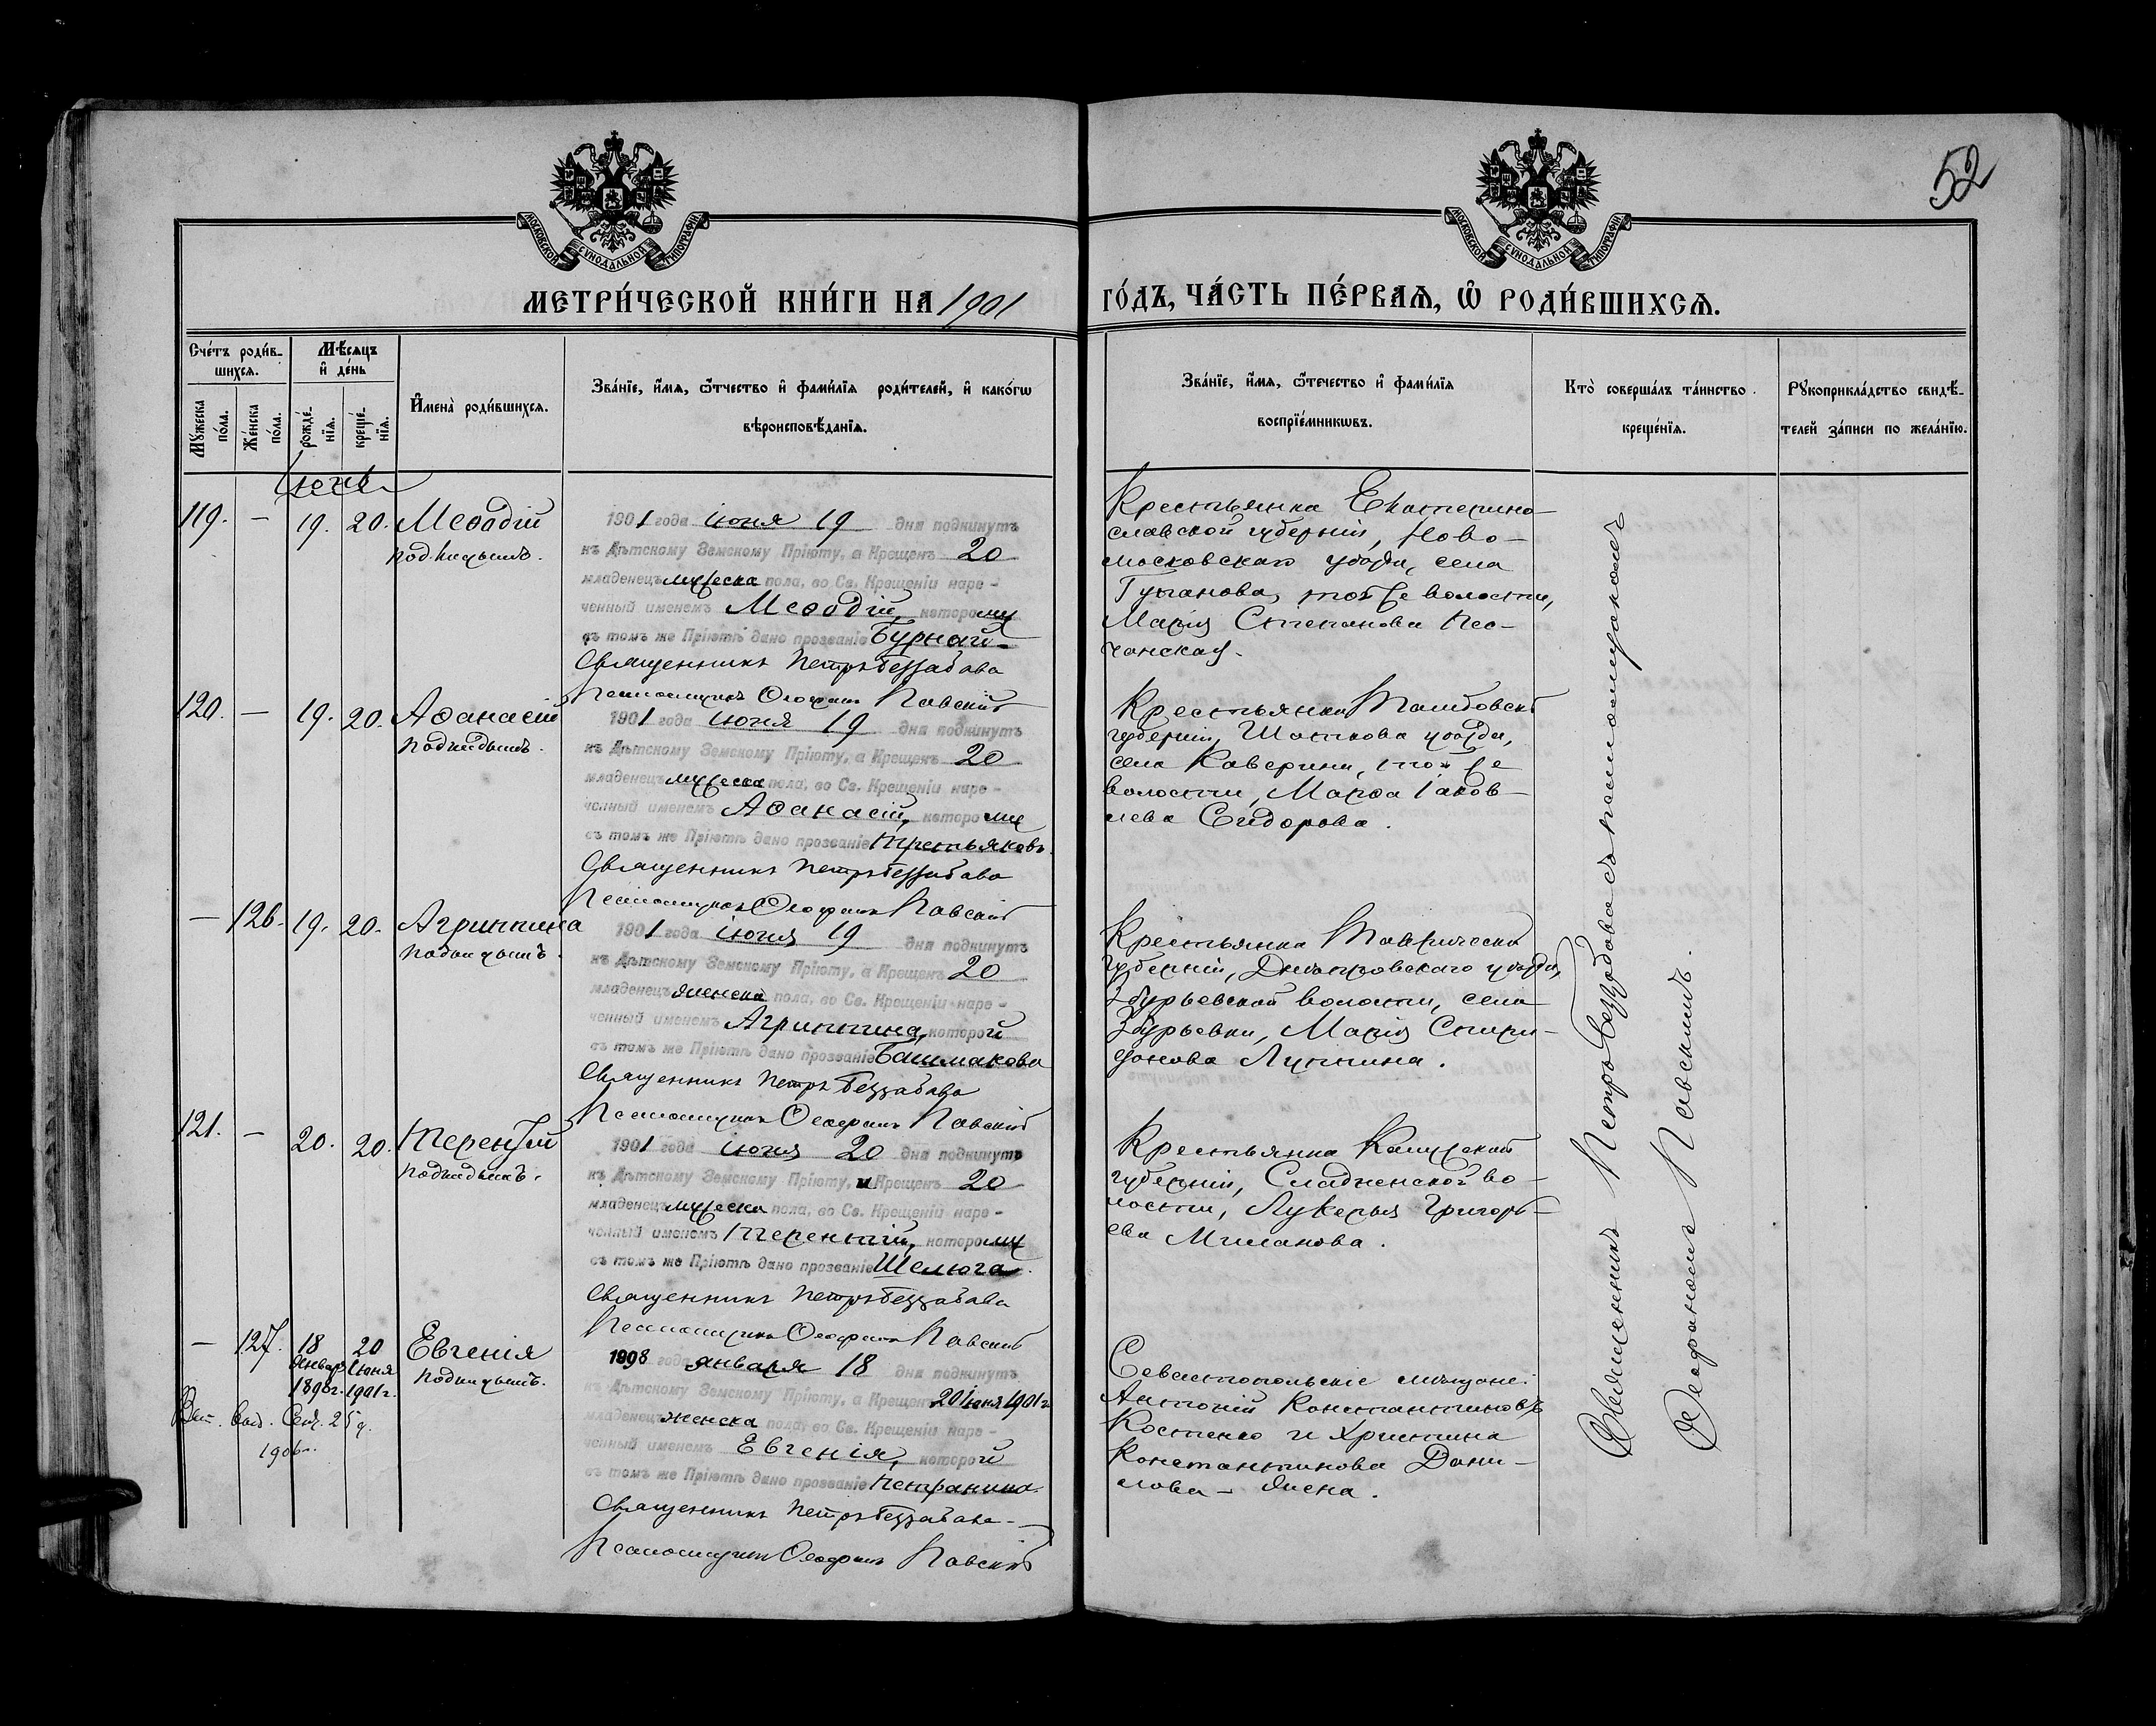 52
МОСКОВСКОЙ СѴНОДАЛЬНОЙ ТИПОГРАФІИ
МОСКОВСКОЙ СѴНОДАЛЬНОЙ ТИПОГРАФІИ
МЕТРИ́ЧЕСКОЙ КНИ́ГИ НА 1901 ГО́ДЪ, ЧА́СТЬ ПЕ́РВАѦ, Ѽ РОДИ́ВШИХСѦ.
Сче́тъ роди́в-
шихсѧ.
Мѣ́сѧцъ
и҆ де́нь
Мꙋ́жеска
по́ла.
Же́нска
по́ла.
рожде́-
нїѧ.
креще́-
нїѧ.
И҆мена̀ роди́вшихсѧ.
Зва́нїе, и҆́мѧ, ѻ҆́тчество и҆ фами́лїѧ роди́телей, и҆ како́гѡ
вѣроисповѣ́данїѧ.
Зва́нїе, и҆́мѧ, ѻ҆́течество и҆ фами́лїѧ
воспрїе́мникѡвъ.
Кто̀ соверша́лъ та́инство
креще́нїѧ.
Рꙋкоприкла́дство свидѣ́-
телей за́писи по жела́нїю.
Іюнь
119. — 19. 20. Меѳодій
подкидышъ.
1901 года іюня 19 дня подкинутъ
къ Дѣтскому Земскому Пріюту, а Крещенъ 20
младенецъ мужеска пола, во Св. Крещеніи наре-
ченный именемъ Меѳодій, которому
въ томъ же Пріютѣ дано прозваніе Бурнай.
Священникъ Петръ Беззабава
Псаломщикъ Ѳеофанъ Павскій
Крестьянка Екатерино-
славской губерніи, Ново-
московскаго уѣзда, села
той же волости,
Марія Степанова
120. — 19. 20. Аѳанасій
подкидышъ.
1901 года іюня 19 дня подкинутъ
къ Дѣтскому Земскому Пріюту, а Крещенъ 20
младенецъ мужеска пола, во Св. Крещеніи наре-
ченный именемъ Аѳанасій, которому
въ томъ же Пріютѣ дано прозваніе Третьяковъ.
Священникъ Петръ Беззабава
Псаломщикъ Ѳеофанъ Павскій
Крестьянка Тамбовской
губерніи, Шатскова уѣзда,
села Каверина, той же
волости, Марѳа Іаков-
лева Сидорова.
— 126. 19. 20. Агриппина
подкидышъ.
1901 года іюня 19 дня подкинутъ
къ Дѣтскому Земскому Пріюту, а Крещенъ 20
младенецъ женска пола, во Св. Крещеніи наре-
ченный именемъ Агриппина, которой
въ томъ же Пріютѣ дано прозваніе Башмакова
Священникъ Петръ Беззабава
Псаломщикъ Ѳеофанъ Павскій
Крестьянка Таврической
губерніи, Днѣпровскаго уѣзда,
Збурьевской волости, села
Збурьевки, Марія Спири-
донова Луппина.
121. — 20. 20. Терентій
подкидышъ.
1901 года іюня 20 дня подкинутъ
къ Дѣтскому Земскому Пріюту, и Крещенъ 20
младенецъ мужеска пола, во Св. Крещеніи наре-
ченный именемъ Терентій, которому
въ томъ же Пріютѣ дано прозваніе Шелюга.
Священникъ Петръ Беззабава
Псаломщикъ Ѳеофанъ Павскій
Крестьянка Калужской
губерніи, во-
лости, Лукерья Григорь-
ева Миланова.
— 127. 18 20 Евгенія
января іюня подкидышъ.
1898г. 1901г.
Сент. 25 д.
1906г.
1898 года января 18 дня подкинутъ
къ Дѣтскому Земскому Пріюту, а Крещенъ 20 іюня 1901 г.
младенецъ женска пола, во Св. Крещеніи наре-
ченный именемъ Евгенія, которой
въ томъ же Пріютѣ дано прозваніе
Священникъ Петръ Беззабава
Псаломщикъ Ѳеофанъ Павскій
Севастопольскіе мѣщане:
Антоній Константиновъ
Костенко и Христина
Константинова Дани-
лова — жена.
Священникъ Петръ Беззабава съ псаломщикомъ
Ѳеофаномъ Павскимъ.